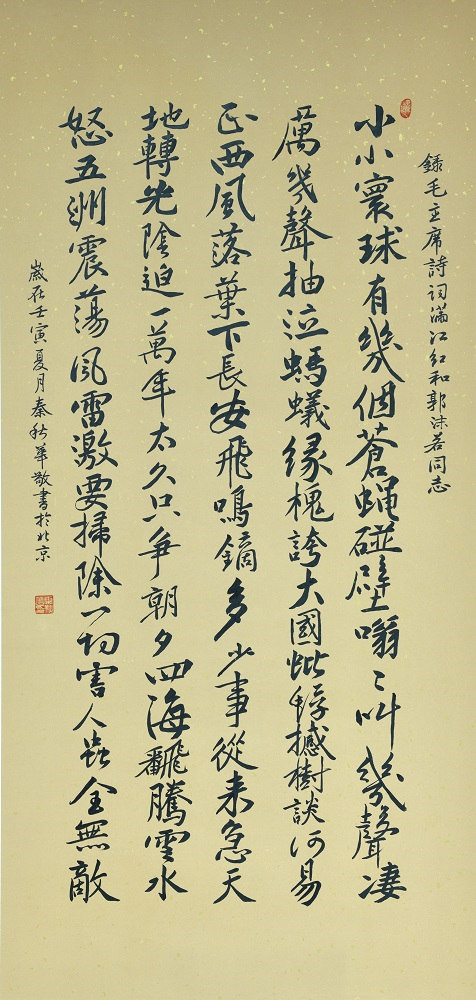 錄毛主席詩詞滿江紅和郭沫若同志
小小寰球有幾個蒼蠅碰壁嗡〻叫幾聲凄
厲幾聲抽泣螞蟻緣槐誇大國蚍蜉撼樹談何易
正西風落葉下長安飛鳴鏑多少事從來急天
地轉光陰迫一萬年太久只爭朝夕四海飜騰雲水
怒五洲震蕩風雷激要掃除一切害人虫全無敵
歲在壬寅夏月秦秋華敬書於北京